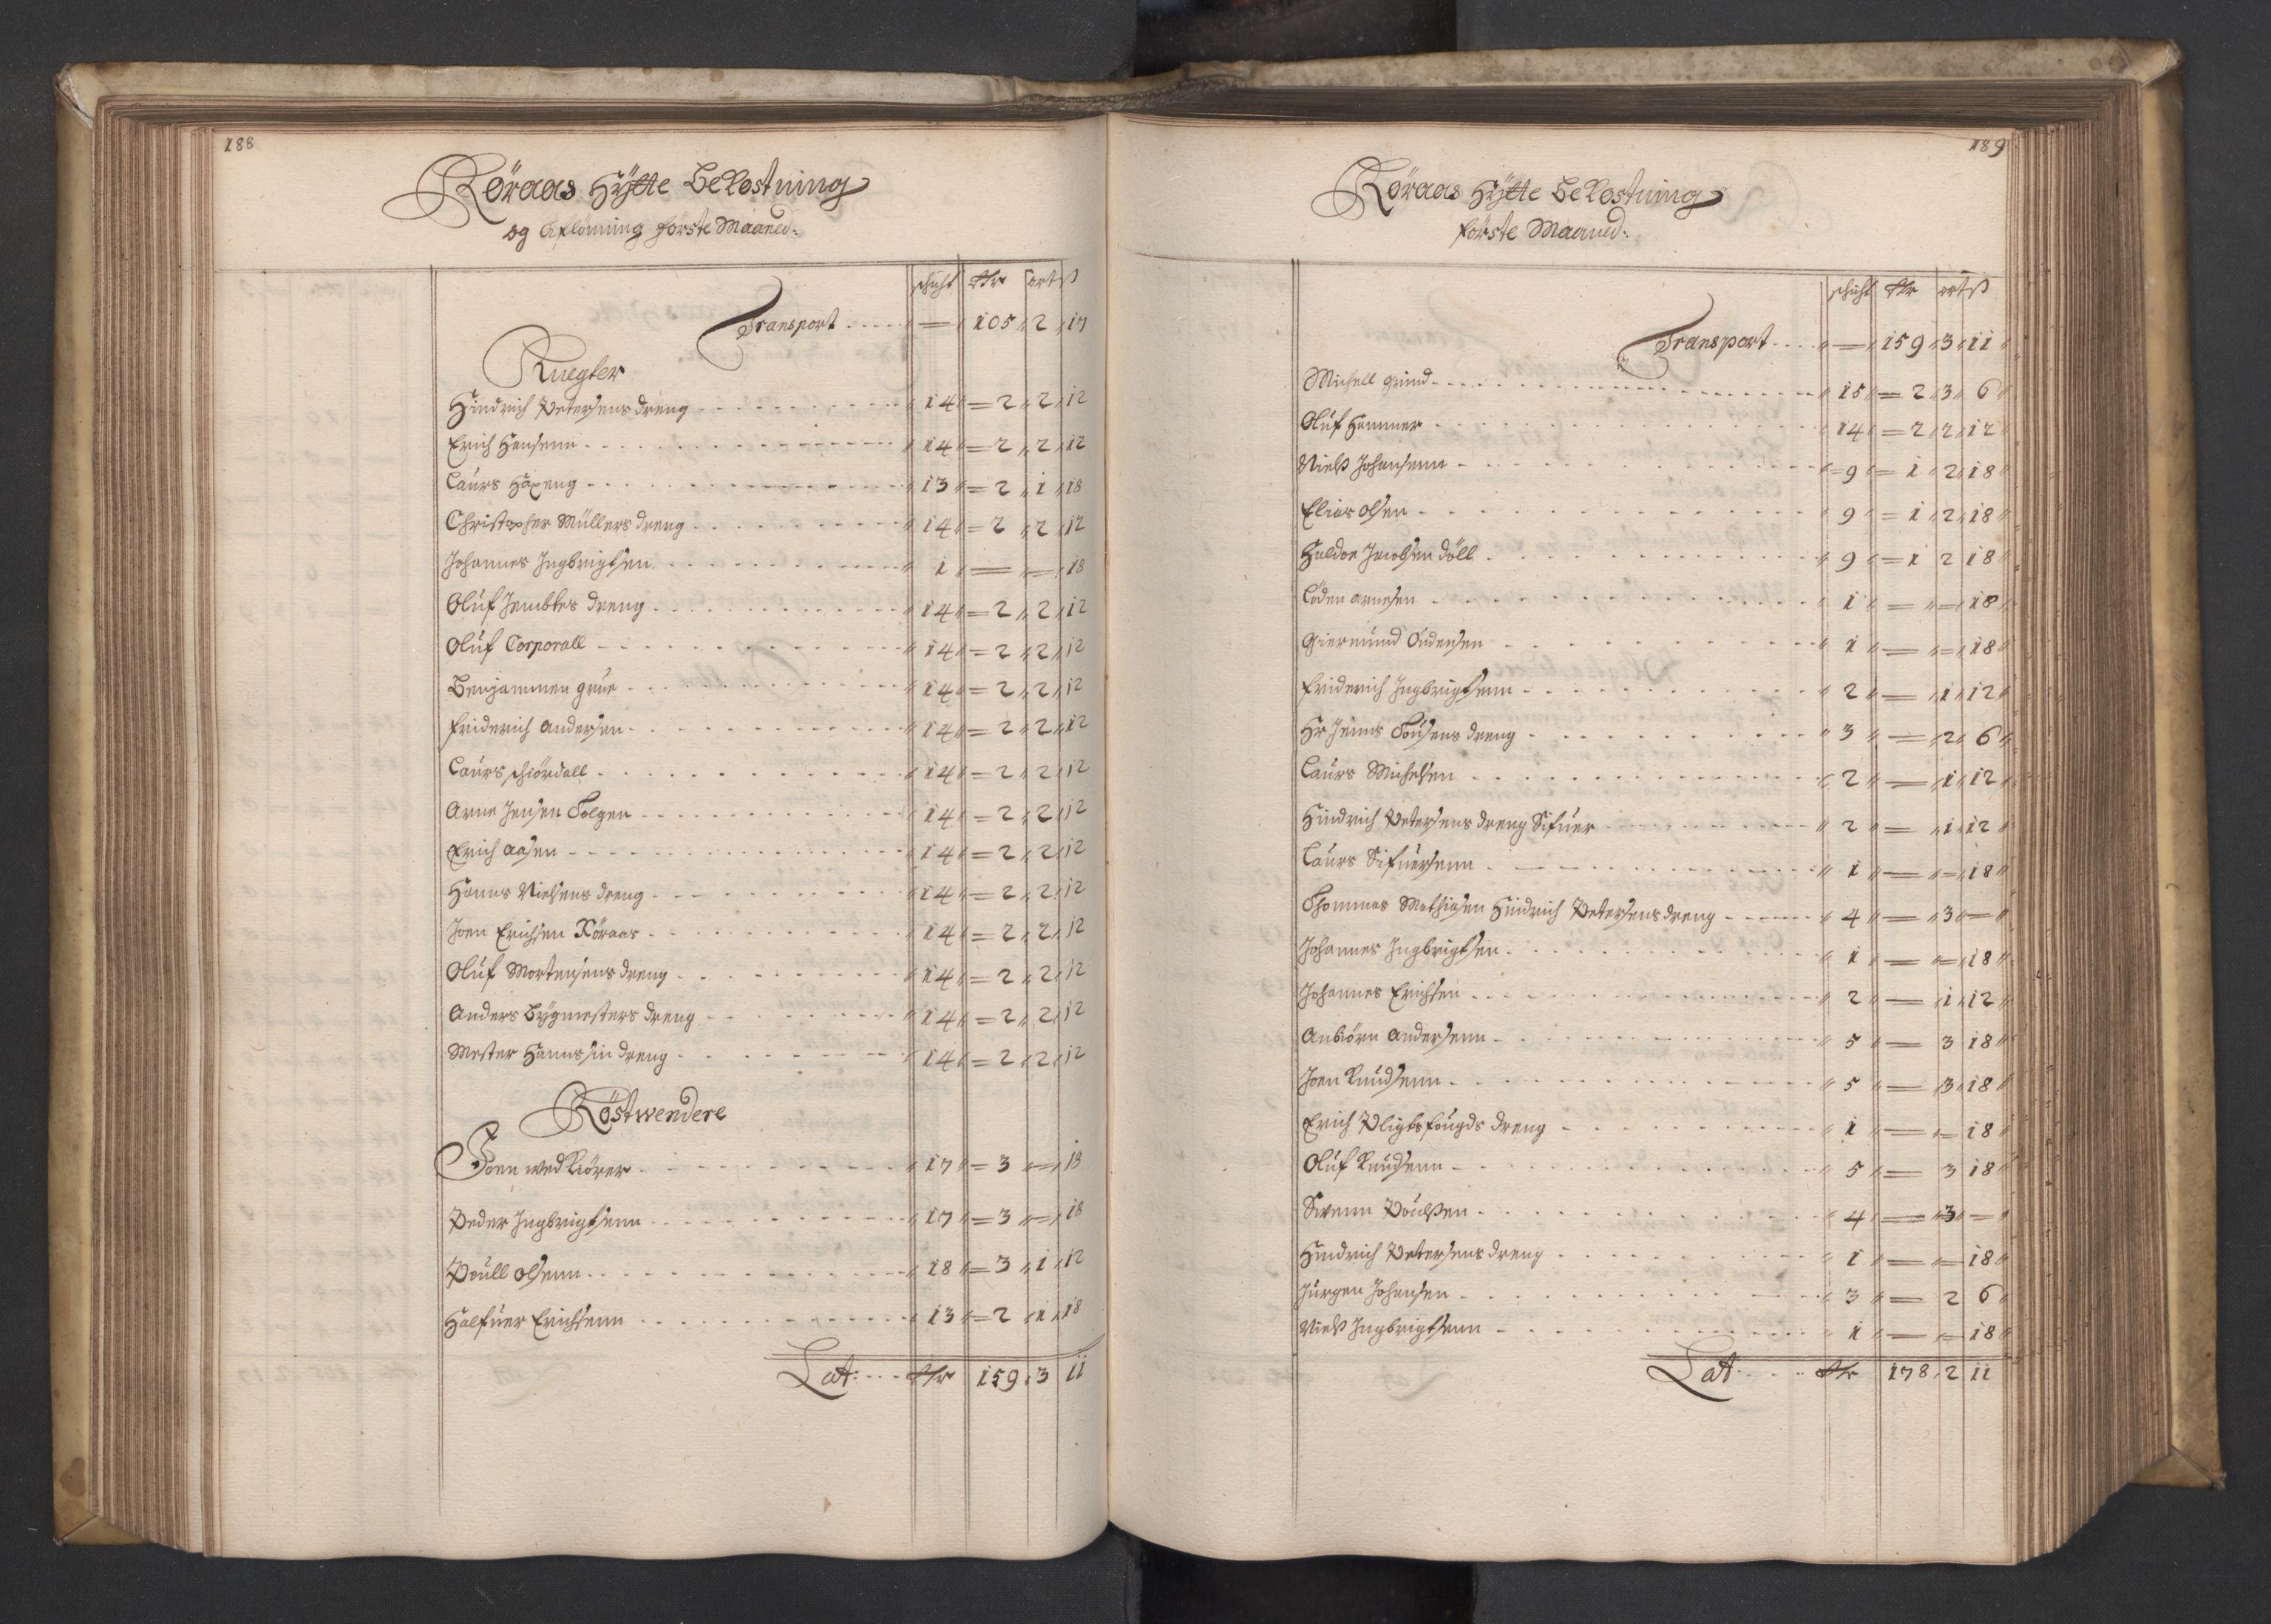 188
Röraas Hÿtte Bekostning
og Aflönning förste Maaned.
schicht Rdr ort ß
Transport — 105 2 17
Knegter
Hindrich Petersens dreng 14 = 2 2 12
Erich Hansenn 14 = 2 2 12
Laurs 13 = 2 1 18
Christopher Müllers dreng 14 = 2 2 12
Johannes Ingbrigtsen 1 — — 18
Oluf dreng 14 = 2 2 12
Oluf Corporall 14 = 2 2 12
Benjammen grue 14 = 2 2 12
Friderich Andersen 14 = 2 2 12
Laurs schiördall 14 = 2 2 12
Arne Jensen Tolgen 14 = 2 2 12
Erich Aasen 14 = 2 2 12
Hanns Nielsens dreng 14 = 2 2 12
Joen Erichsen Röraas 14 = 2 2 12
Oluf Mortensens dreng 14 = 2 2 12
Anders Bÿgmesters dreng 14 = 2 2 12
Mester Hanns sin dreng 14 = 2 2 12
Röstwendere
Joen wed Kiörer 17 = 3 = 18
Peder Ingbrigtsenn 17 = 3 = 18
Poull Olsenn 18 = 3 1 12
Halfuer Erichsenn 13 = 2 1 18
Lat: Rdr 159 3 11
189
Röraas Hÿtte Bekostning
förste Maaned.
schicht Rdr ort ß
Transport — 159 3 11
Michell grind 15 = 2 3 6
Oluf Hammer 14 = 2 2 12
Nielß Johansenn 9 = 1 2 18
Elias Olsen 9 = 1 2 18
Haldor Jacobsen döll 9 = 1 2 18
Loden Arnesen 1 — = 18
Giermund Endersen 1 — = 18
Friderich Ingbrigtsenn 2 — 1 12
Hr Jenns dreng 3 — 2 6
Laurs Michelsen 2 — 1 12
Hindrich Petersens dreng Sifuer 2 — 1 12
Laurs Sifuersenn 1 — = 18
Thommas Mathiasen Hindrich Petersens dreng 4 — 3 —
Johannes Ingbrigtsen 1 — = 18
Johannes Erichsen 2 — 1 12
Anbiörn Andersenn 5 — 3 18
Joen Knudsenn 5 — 3 18
Erich Pligtsfougds dreng 1 — = 18
Oluf Knudsenn 5 — 3 18
Swenn Poulßen 4 — 3 =
Hindrich Petersens dreng 1 — = 18
Jürgen Johansen 3 — 2 6
Nielß Ingbrigtsenn 1 — = 18
Lat Rdr 178 2 11